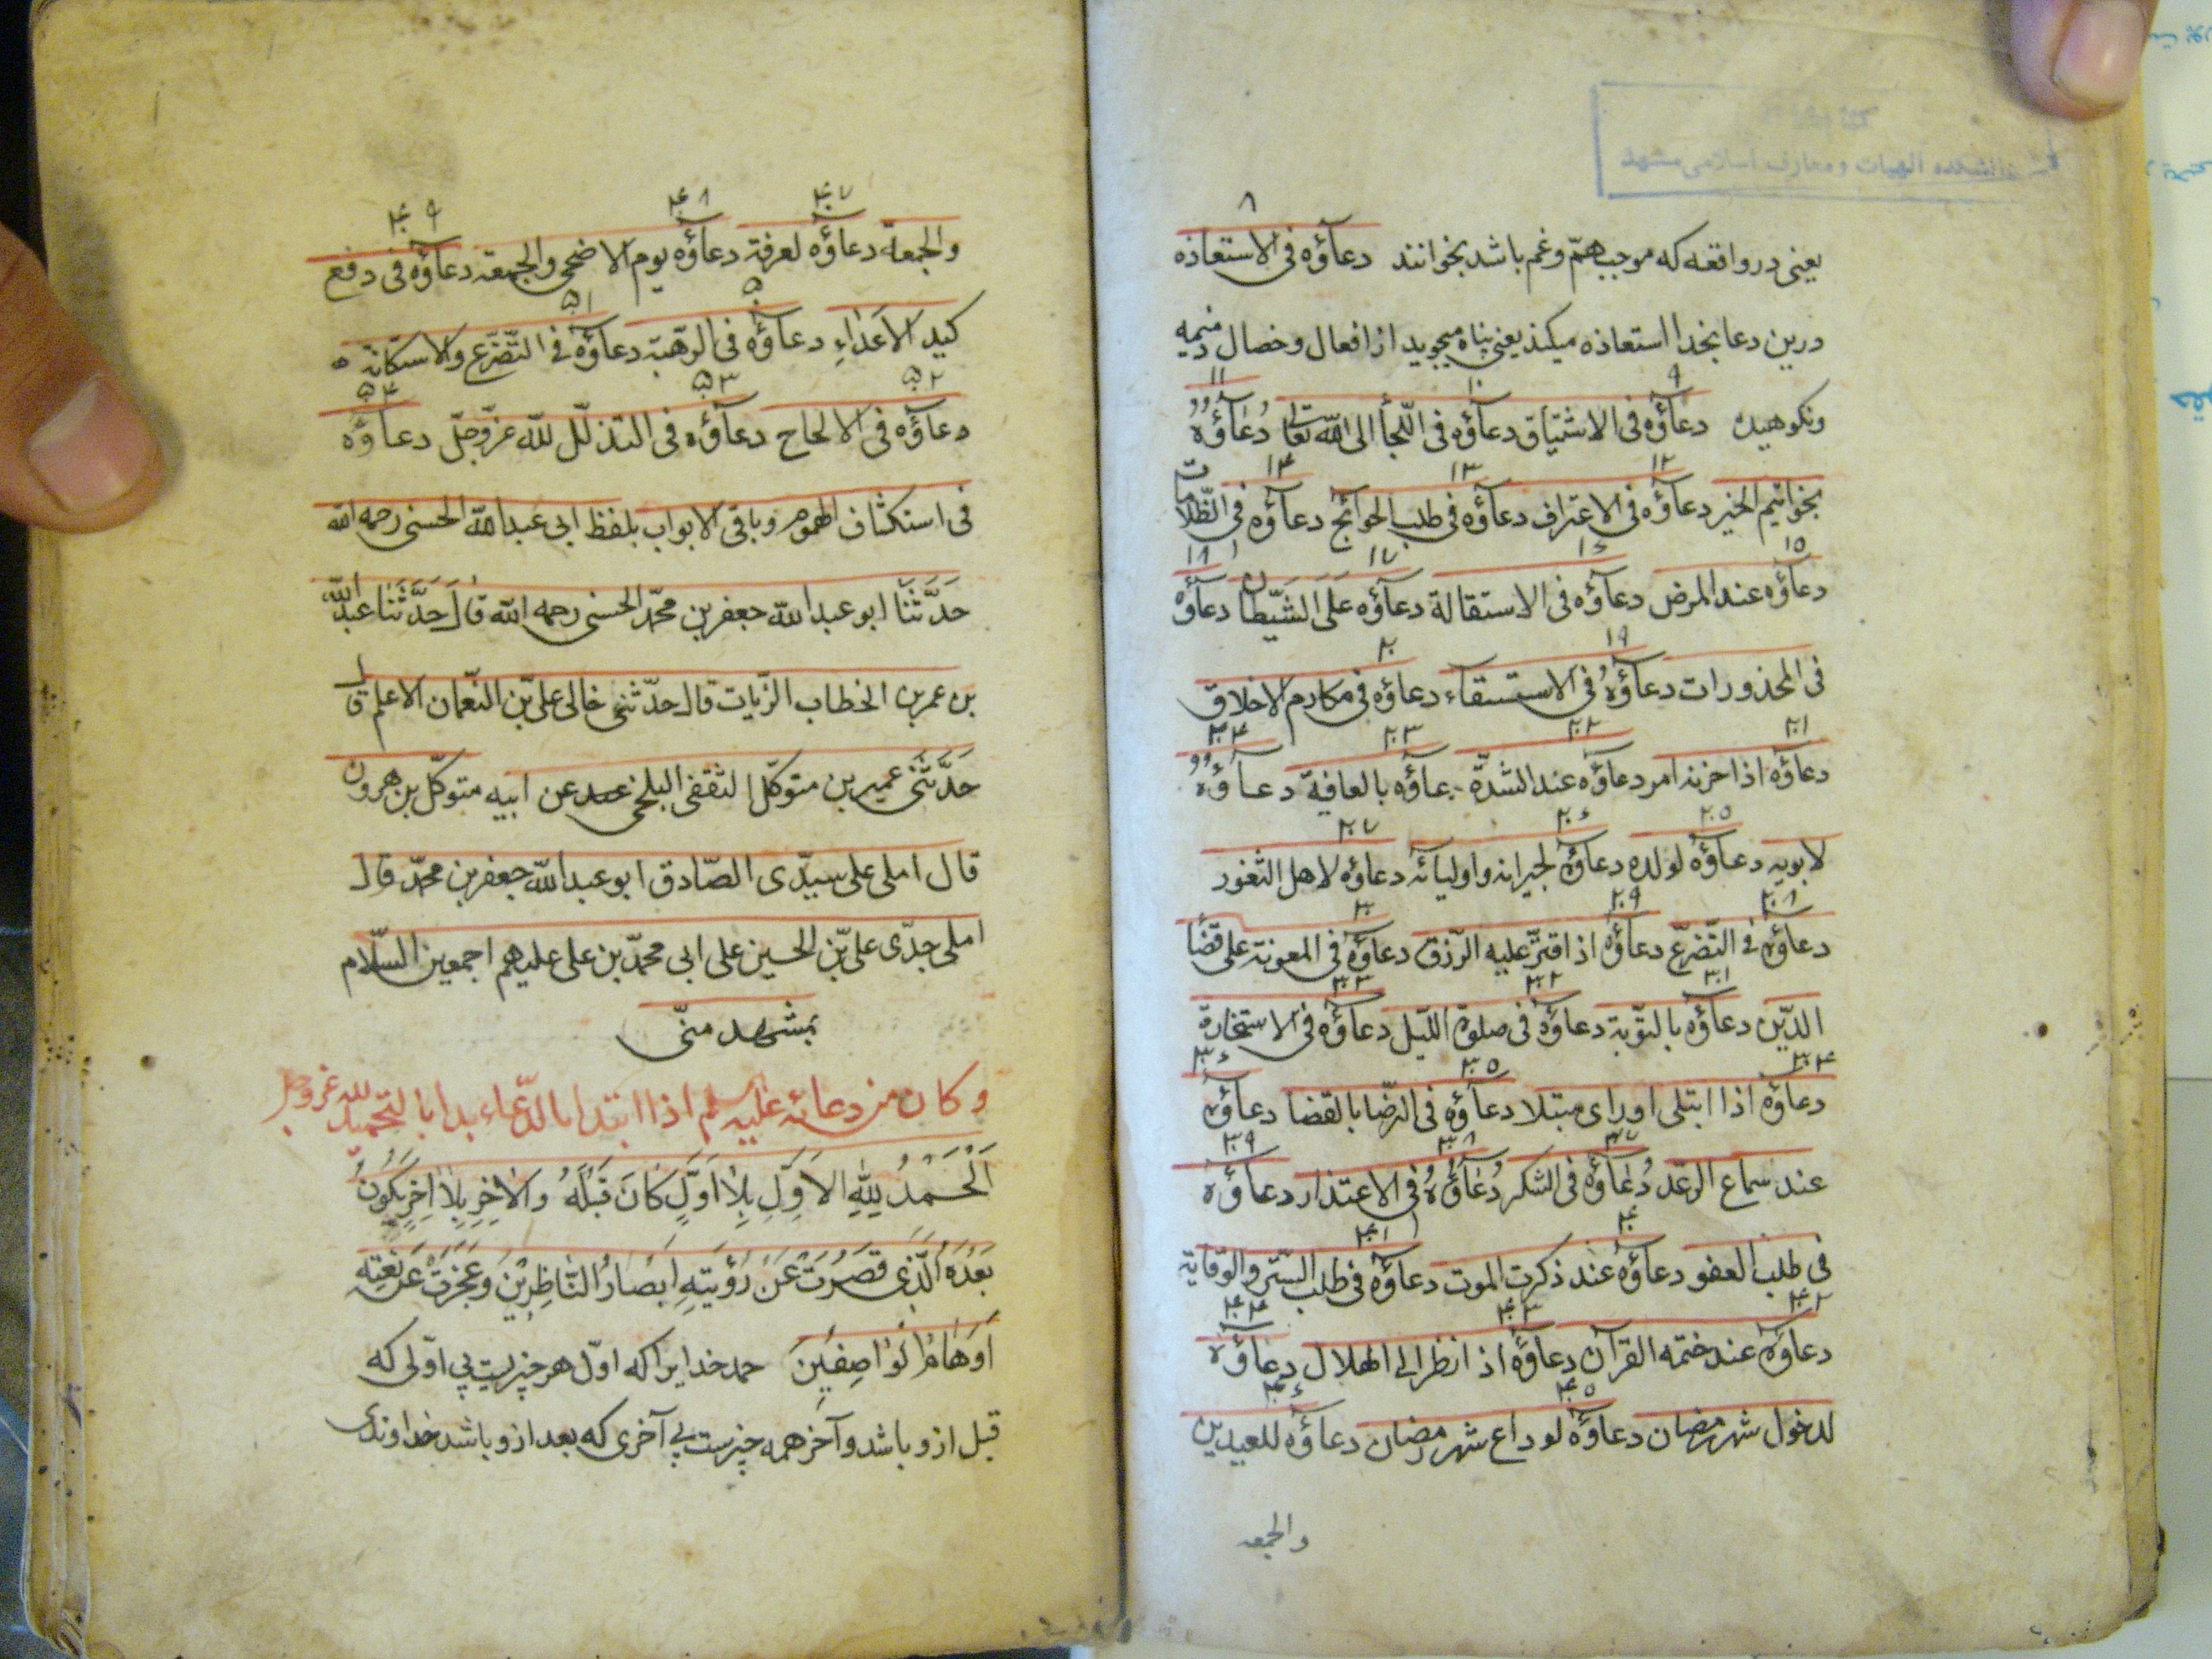 دانشکده الهیات و معارف اسلامی مشهد
۸
یعنی در واقعه که موجب همّ وغم باشد بخوانند دعاؤه فی الاستعاذه
درین دعا بخدا استعاذه میکند یعنی پناه میجوید از افعال وخصال ذمیمه
۹ ۱۰ ۱۱
ونکوهیده دعاؤه فی الاشتیاق دعاؤه فی اللّجأ الی الله تعالی دُعاؤُهُ
۱۲ ۱۳ ۱۴
بخواتیم الخیر دعاؤه فی الاعتراف دعاؤه فی طلب الحوائج دعاؤه فی الظّلامات
۱۵ ۱۶ ۱۷ ۱۸
دعاؤه عند المرض دعاؤه فی الاستقالة دعاؤه عَلَی الشَیّطان دعاؤه
۱۹ ۲۰
فی المحذورات دعاؤهُ فی الاستسقاء دعاؤه فی مکارم الاخلاق
۲۱ ۲۲ ۲۳ ۲۴
دعاؤه اذا حزنه امر دعاؤه عند الشدّة دعاؤه بالعافیة دعاؤُهُ
۲۵ ۲۶ ۲۷
لابویه دعاؤهُ لولده دعاؤهُ لجیرانه واولیائه دعاؤه لاهل الثغور
۲۸ ۲۹ ۳۰
دعاؤه فی التّضرّع دعاؤهُ اذ اقترّ علیه الرّزق دعاؤه فی المعونة علی قضأ
۳۱ ۳۲ ۳۳
الدّین دعاؤه بالتوّبة دعاؤه فی صلوة اللّیل دعاؤه فی الاستخارة
۳۴ ۳۵ ۳۶
دعاؤه اذا ابتلی او رای مبتلا دعاؤه فی الرضّا بالقضا دعاؤه
۳۷ ۳۸ ۳۹
عند سماع الرعد دُعاؤه فی الشکر دُعاؤُهُ فی الاعتذار دعاؤه
۴۰ ۴۱
فی طلب العفو دعاؤه عند ذکرت الموت دعاؤه فی طلب السّتر والوّقایة
۴۲ ۴۳ ۴۴
دعاؤه عند ختمه القرآن دعاؤه اذ انظر الی الهلال دعاؤه
۴۵ ۴۶
لدخول شهر رمضان دعاؤه لوداع شهر رمضان دعاؤه للعیدین
والجمعه
۴۷ ۴۸ ۴۹
والجمعة دعاؤه لعرفة دعاؤه یوم الاضحی والجمعة دعاؤه فی دفع
۵۰ ۵۱
کید الاَعداءِ دعاؤه فی الرهّبة دعاؤه فی التّضّرع والاستکانة ه
۵۲ ۵۳ ۵۴
دعاؤه فی الالحاح دعاؤه فی التذلّل للّه عزّوجلّ دعاؤُه
فی استکشاف الهموم وباقی الابواب بلفظ ابی عبدالله الحسنی رحمه الله
حَدَّثَنَا ابو عبدالله جعفر بن محمّد الحسنی رحمه الله قال حَدَّثَنٰا عبدُالله
بن عمر بن الخطاب الزّیات قال حدّثنی خالی علیّ بن النّعمان الاعلم قال
حَدَّثَنی عمیر بن متوکّل الثقفی البلخی عن ابیه متوکّل بن هرون
قال املی علی سیّدی الصّادق ابو عبدالله جعفر بن محمّد قال
املی جدّی علیّ بن الحسین علی ابی محمّد بن علی علیهم اجمعین السّلام
بمشهد منّی
وکان من دعائه علیه سلم اذا ابتدا بالدّعاء بدا بالتحمید لله عزوجل
اَلْحَمْدُ لِلّٰهِ الاَوَّلِ بِلاٰ اَوَّلٍ کٰانَ قَبْلَهُ والاٰخِرِ بِلاٰ اٰخِرٍ یَکُونُ
بَعْدَهُ اَلَّذی قَصُرَتْ عَنْ رُؤْیَتِهِ اَبْصٰارُ النّٰاظِرِیْنَ وَعَجَزَتْ عَنْ نَعْتِهِ
اَوْهٰامُ الْوٰاصِفِیْنَ حمد خدایرا که اوّل هر چیزیست بی اوّلی که
قبل ازو باشد و آخر همه چیزست بی آخری که بعد ازو باشد خداوندی